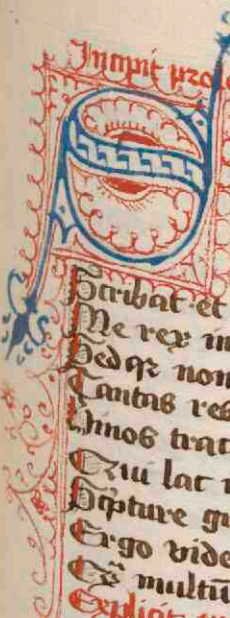 Incipit prol
Scribat et
Ne rex in
Sedqꝫ non
Tantas res
trac
Qui lac
Sc̄pture gu
Ergo vide
multū
Explicit